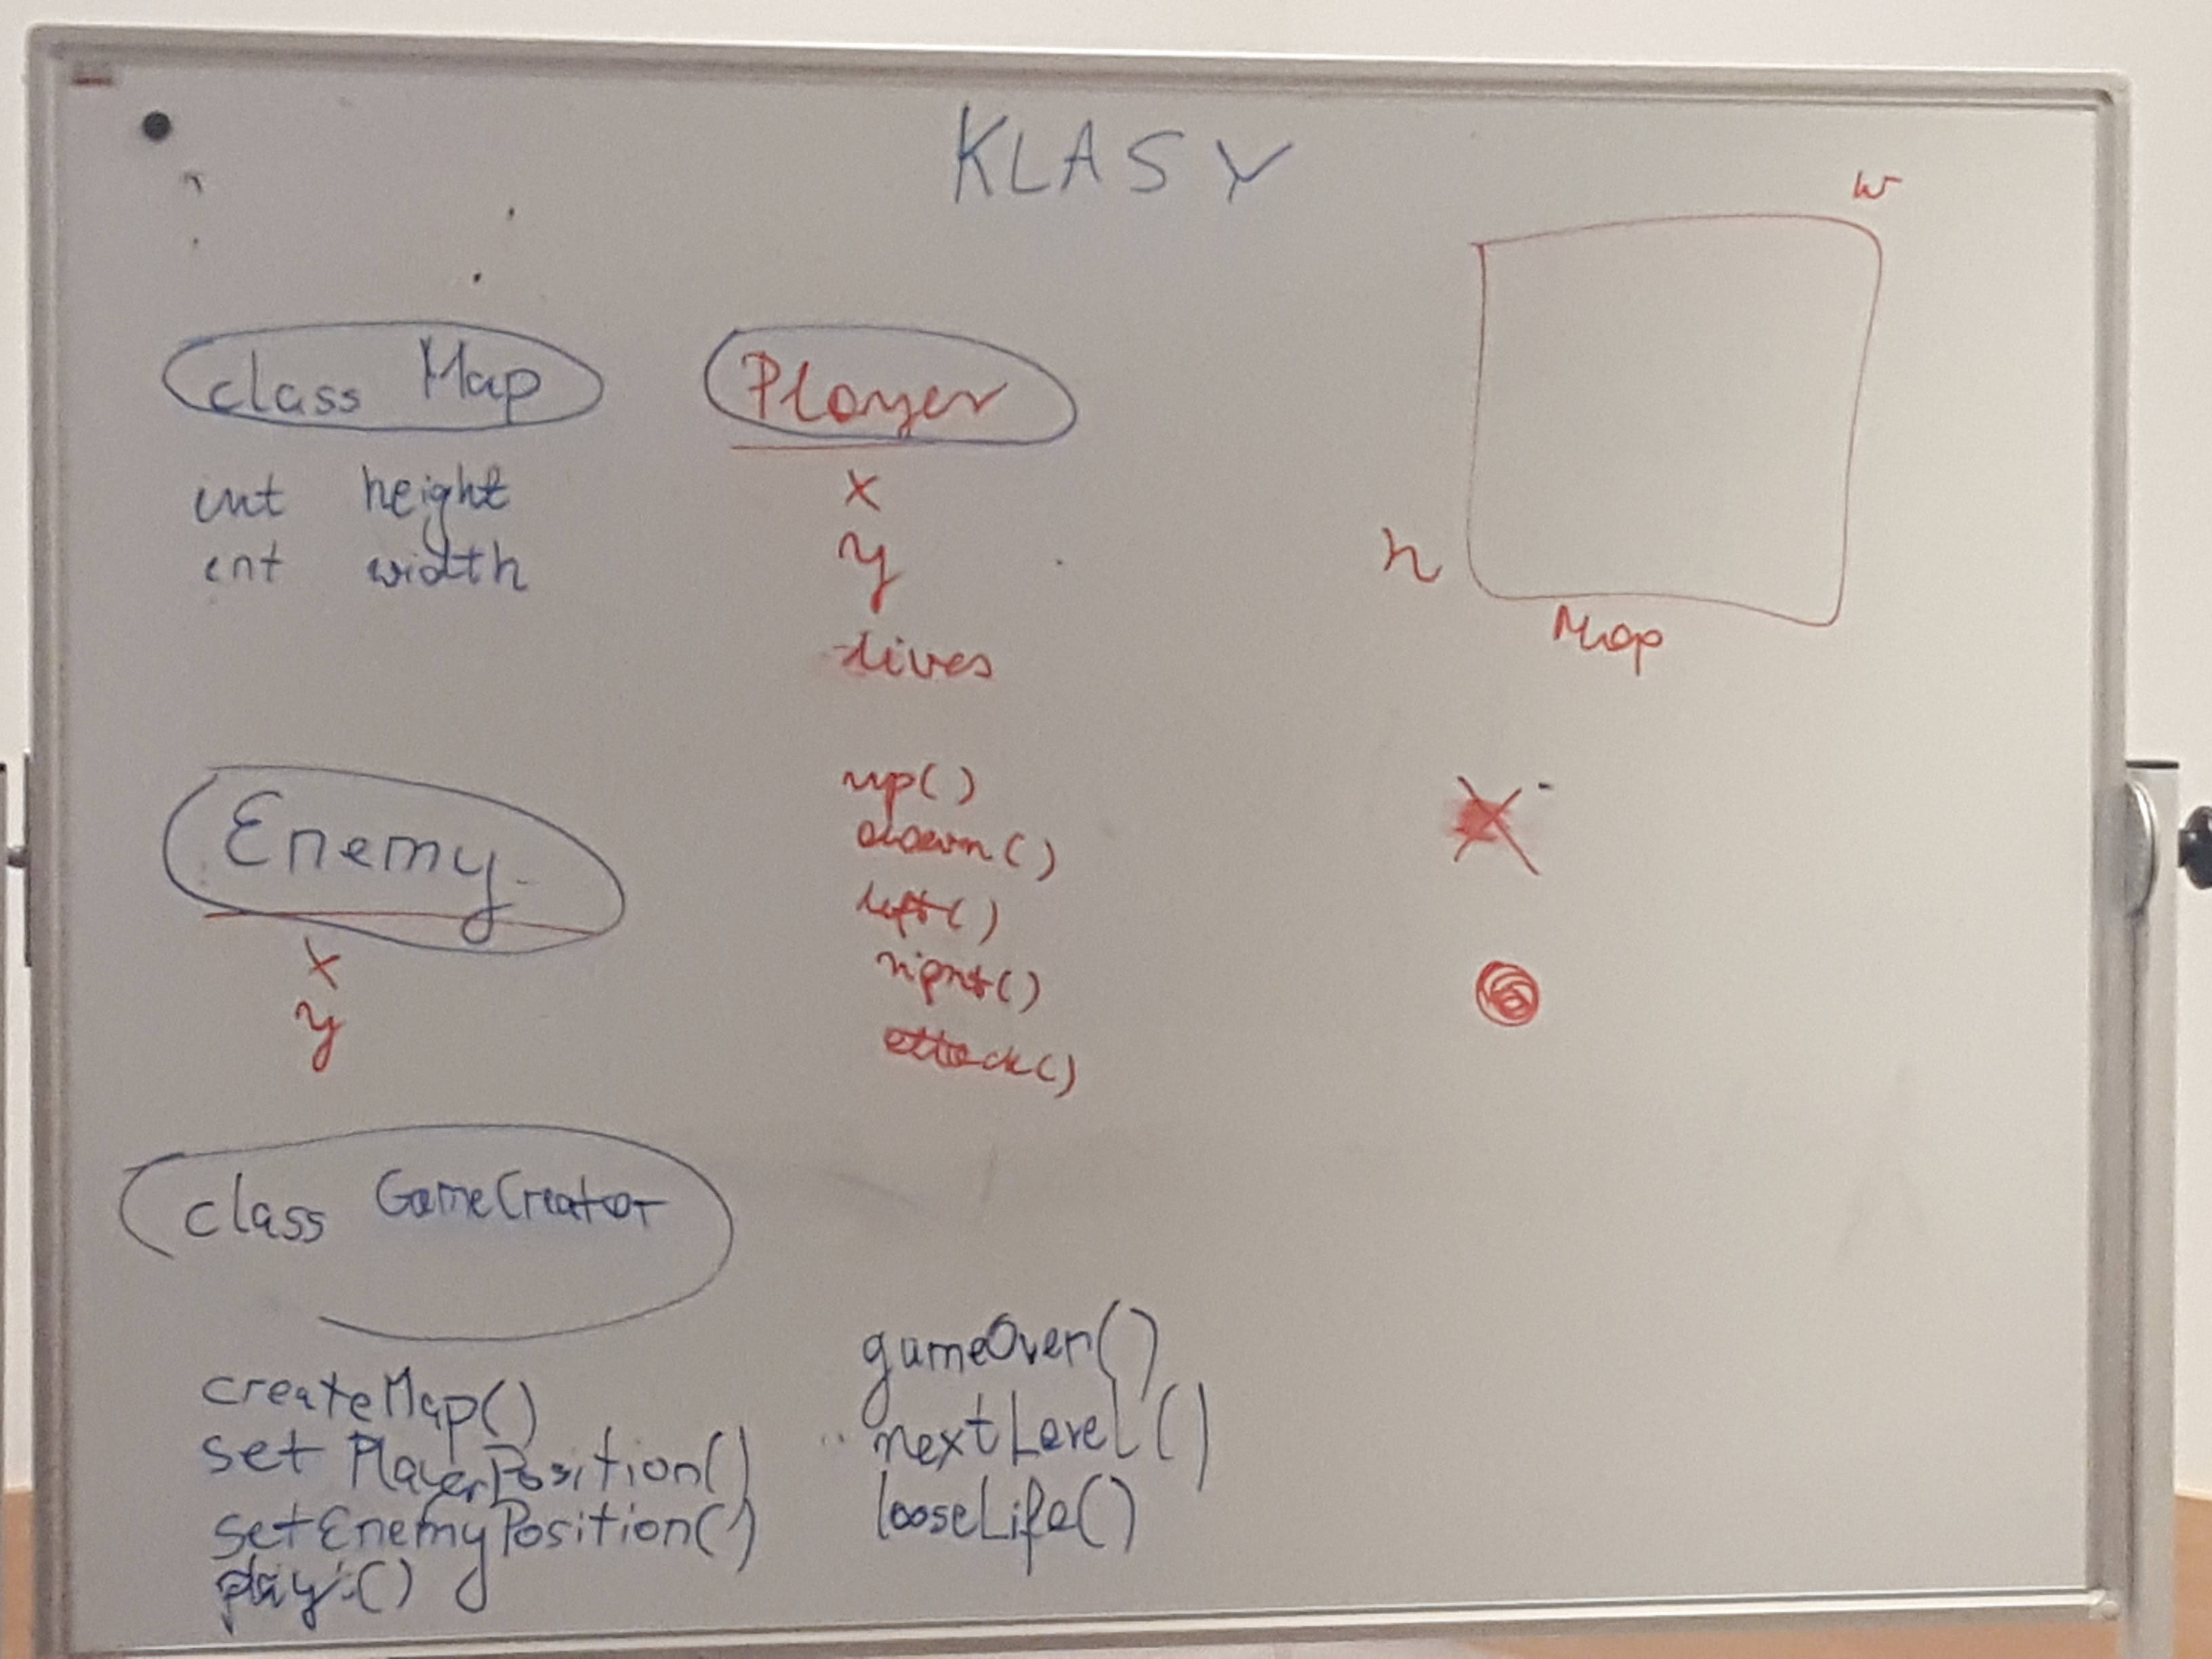 KLASY
class Map
int height
int width
Player
x
y
lives
up()
down()
left()
right()
attack()
w
h
Map
Enemy
x
y
class GameCreator
createMap()
set PlayerPosition()
setEnemyPosition()
play()
gameOver()
nextLevel()
looseLife()